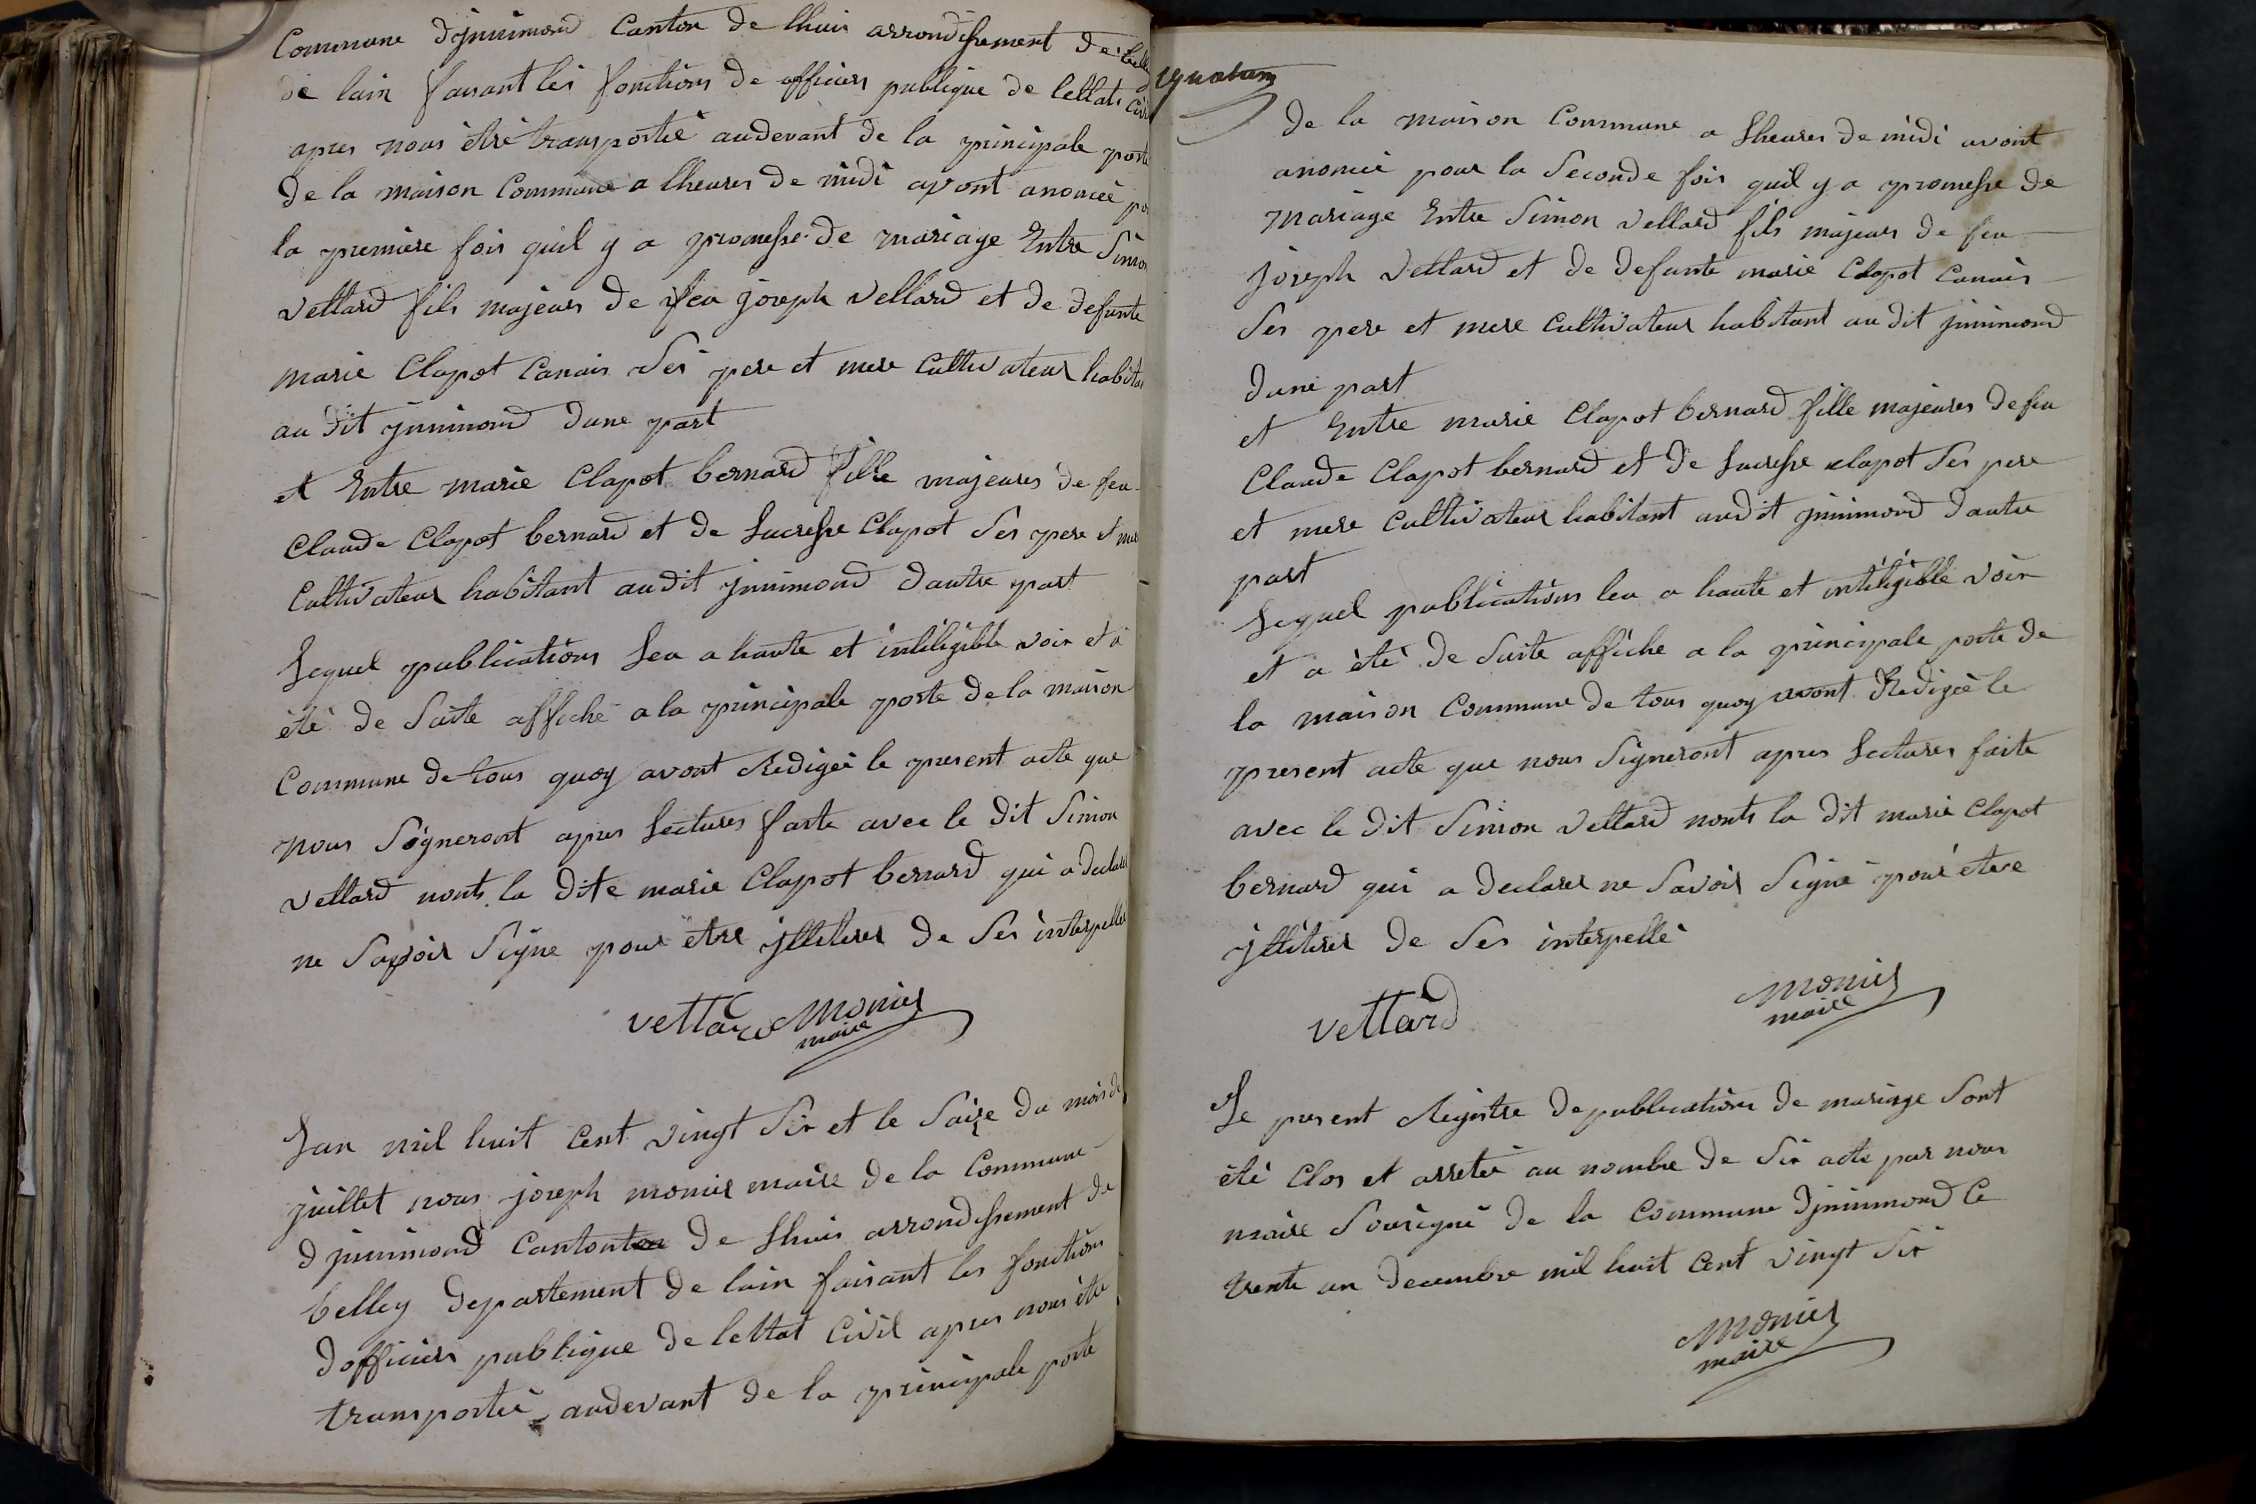 Commune djnimond Canton de lhuis arrondissement de belley
de lain faisant les fonctions de officiers publique de lettat Civil
apres nous être transportée audevant de la principale porte
de la maison Commune a lheures de midi avont anoncée
la premiere fois quil y a promesse de mariage Entre Simon
Vettard fils majeurs de feu joseph Vettard et de defunte
marie Clapot Canais Ses pere et mere Cultivateur habitant
au dit jnnimond dune part
et Entre marie Clapot bernard fille majeures de feu
Claude Clapot bernard et de Lucresse Clapot Ses pere et mere
Cultivateur habitant audit jnnimond dautre part
Lequel publications Leu a haute et inteligible voix et a
été de Suite affiché a la principale porte de la maison
Commune de tous quoy avont Redigée le present acte que
nous Signeront apres Lectures faite avec le dit Simon
Vettard nonts la dite marie Clapot bernard qui a declarer
ne Savoir Signe pour être jlliterer de Ses interpeller
Vettard Monier
maire
Lan mil huit Cent vingt Six et le Saize du mois de
juillet nous joseph monier maire de la Commune
djnnimond Canton de Lhuis arrondissement de
belley departement de lain faisant les fonctions
dofficiers publique de lettat Civil apres nous être
transportée audevant de la principale porte
de la maison Commune a Lheures de midi avont
anoncée pour la Seconde fois quil y a promesse de
Mariage Entre Simon Vettard fils majeurs de feu
joseph Vettard et de defunte marie Clapot Canais
Ses pere et mere Cultivateur habitant au dit jnnimond
dune part
et Entre marie Clapot bernard fille majeures de feu
Claude Clapot bernard et de Lucresse Clapot Ses pere
et mere Cultivateur habitant audit jnnimond dautre
part
Lequel publications leu a haute et inteligible voix
et a été de Suite affiche a la principale porte de
la maison Commune de tous quoy avont Redigée le
present acte que nous Signeront apres Lectures faite
avec le dit Simon Vettard nonts la dit marie Clapot
bernard qui a declarer ne Savoir Signé pour etre
jlliterer de Ses interpellé
Vettard
Monier
maire
Le present Registre de publications de mariage Sont
été Clos et arretée au nombre de Six acte par nous
maire Sousigné de la Commune Djnnimond Ce
trente un decembre mil huit Cent vingt Six
Monier
maire